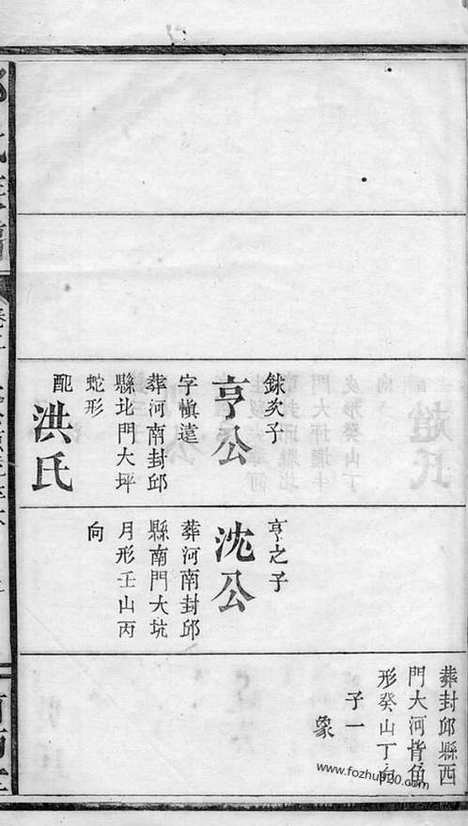 鈥次子
亨公
字愼遠
葬河南封邱
縣北門大坪
蛇形
配
洪氏
亨之子
沈公
葬河南封邱
縣南門大坑
月形壬山丙
向
葬封邱縣西
門大河背魚
形癸山丁向
子一
象
www.fozhu920.com